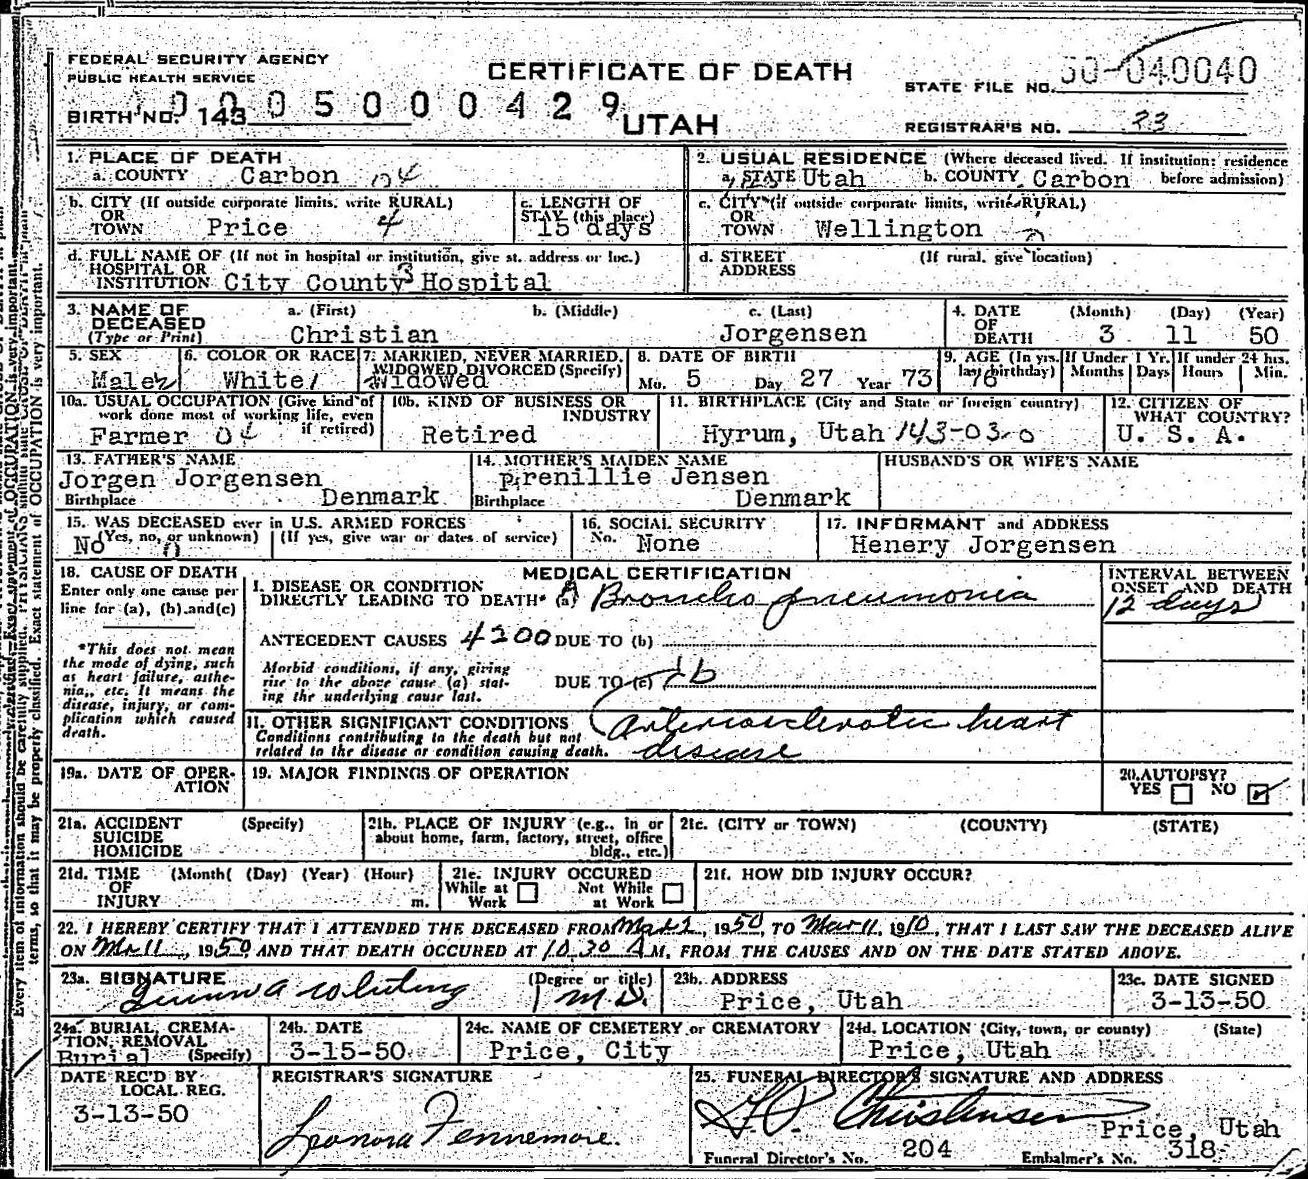 FEDERAL SECURITY AGENCY
PUBLIC HEALTH SERVICE
CERTIFICATE OF DEATH
STATE FILE NO. 50-040040
0005000429
BIRTH NO. 143
UTAH
REGISTRAR'S NO. 23
1. PLACE OF DEATH
a. COUNTY Carbon 04
2. USUAL RESIDENCE (Where deceased lived. If institution: residence before admission)
a. STATE Utah b. COUNTY Carbon
b. CITY (If outside corporate limits, write RURAL)
OR
TOWN Price 4
c. LENGTH OF
STAY (this place)
15 days
c. CITY (if outside corporate limits, write RURAL)
OR
TOWN Wellington
d. FULL NAME OF (If not in hospital or institution, give st. address or loc.)
HOSPITAL OR
INSTITUTION City County Hospital
3
d. STREET (If rural, give location)
ADDRESS
3. NAME OF DECEASED (Type or Print)
a. (First) b. (Middle) c. (Last)
Christian Jorgensen
4. DATE OF DEATH (Month) (Day) (Year)
3 11 50
5. SEX
Male
6. COLOR OR RACE
White
7. MARRIED, NEVER MARRIED, WIDOWED DIVORCED (Specify)
Widowed
8. DATE OF BIRTH
Mo. 5 Day 27 Year 73
9. AGE (In yrs. last birthday) 76
If Under 1 Yr. Months Days
If under 24 hrs. Hours Min.
10a. USUAL OCCUPATION (Give kind of work done most of working life, even if retired)
Farmer 04
10b. KIND OF BUSINESS OR INDUSTRY
Retired
11. BIRTHPLACE (City and State or foreign country)
Hyrum, Utah 143-03-0
12. CITIZEN OF WHAT COUNTRY?
U. S. A.
13. FATHER'S NAME
Jorgen Jorgensen
Birthplace Denmark
14. MOTHER'S MAIDEN NAME
Prenillie Jensen
Birthplace Denmark
HUSBAND'S OR WIFE'S NAME
15. WAS DECEASED ever in U.S. ARMED FORCES
(Yes, no, or unknown) (If yes, give war or dates of service)
No 0
16. SOCIAL SECURITY
No. None
17. INFORMANT and ADDRESS
Henery Jorgensen
18. CAUSE OF DEATH
Enter only one cause per line for (a), (b), and (c)
*This does not mean the mode of dying, such as heart failure, asthenia, etc. It means the disease, injury, or complication which caused death.
MEDICAL CERTIFICATION
I. DISEASE OR CONDITION
DIRECTLY LEADING TO DEATH* (a) Broncho pneumonia
INTERVAL BETWEEN ONSET AND DEATH
12 days
ANTECEDENT CAUSES 4200 DUE TO (b)
Morbid conditions, if any, giving rise to the above cause (a) stating the underlying cause last.
DUE TO (c)
II. OTHER SIGNIFICANT CONDITIONS
Conditions contributing to the death but not related to the disease or condition causing death.
Arteriosclerotic heart
disease
19a. DATE OF OPERATION
19. MAJOR FINDINGS OF OPERATION
20. AUTOPSY?
YES NO
21a. ACCIDENT (Specify)
SUICIDE
HOMICIDE
21b. PLACE OF INJURY (e.g., in or about home, farm, factory, street, office bldg., etc.)
21c. (CITY or TOWN) (COUNTY) (STATE)
21d. TIME (Month( (Day) (Year) (Hour)
OF
INJURY m.
21e. INJURY OCCURED
While at Work Not While at Work
21f. HOW DID INJURY OCCUR?
22. I HEREBY CERTIFY THAT I ATTENDED THE DECEASED FROM Mar 2, 1950, TO Mar 11, 1910, THAT I LAST SAW THE DECEASED ALIVE
ON Mr 11, 1950, AND THAT DEATH OCCURED AT 10 30 A M, FROM THE CAUSES AND ON THE DATE STATED ABOVE.
23a. SIGNATURE (Degree or title)
M.D.
23b. ADDRESS
Price, Utah
23c. DATE SIGNED
3-13-50
24a. BURIAL, CREMATION, REMOVAL (Specify)
Burial
24b. DATE
3-15-50
24c. NAME OF CEMETERY or CREMATORY
Price, City
24d. LOCATION (City, town, or county) (State)
Price, Utah
DATE REC'D BY LOCAL REG.
3-13-50
REGISTRAR'S SIGNATURE
Leonora Fennemore.
25. FUNERAL DIRECTOR'S SIGNATURE AND ADDRESS
Christensen
Price, Utah
Funeral Director's No. 204 Embalmer's No. 318
Every item of information should be carefully supplied.
terms, so that it may be properly classified. Exact statement of OCCUPATION is very important.